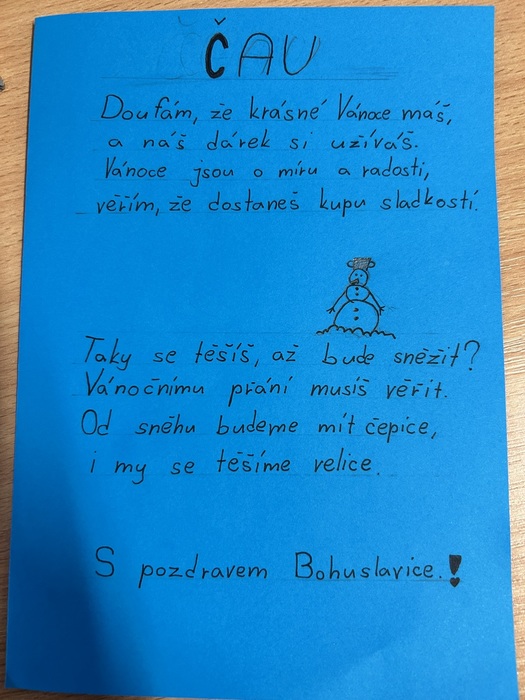 ČAU
Doufám, že krásné Vánoce máš,
a náš dárek si užíváš.
Vánoce jsou o míru a radosti,
věřím, že dostaneš kupu sladkostí.
Taky se těšíš, až bude sněžit?
Vánočnímu přání musíš věřit.
Od sněhu budeme mít čepice,
i my se těšíme velice.
S pozdravem Bohuslavice.!